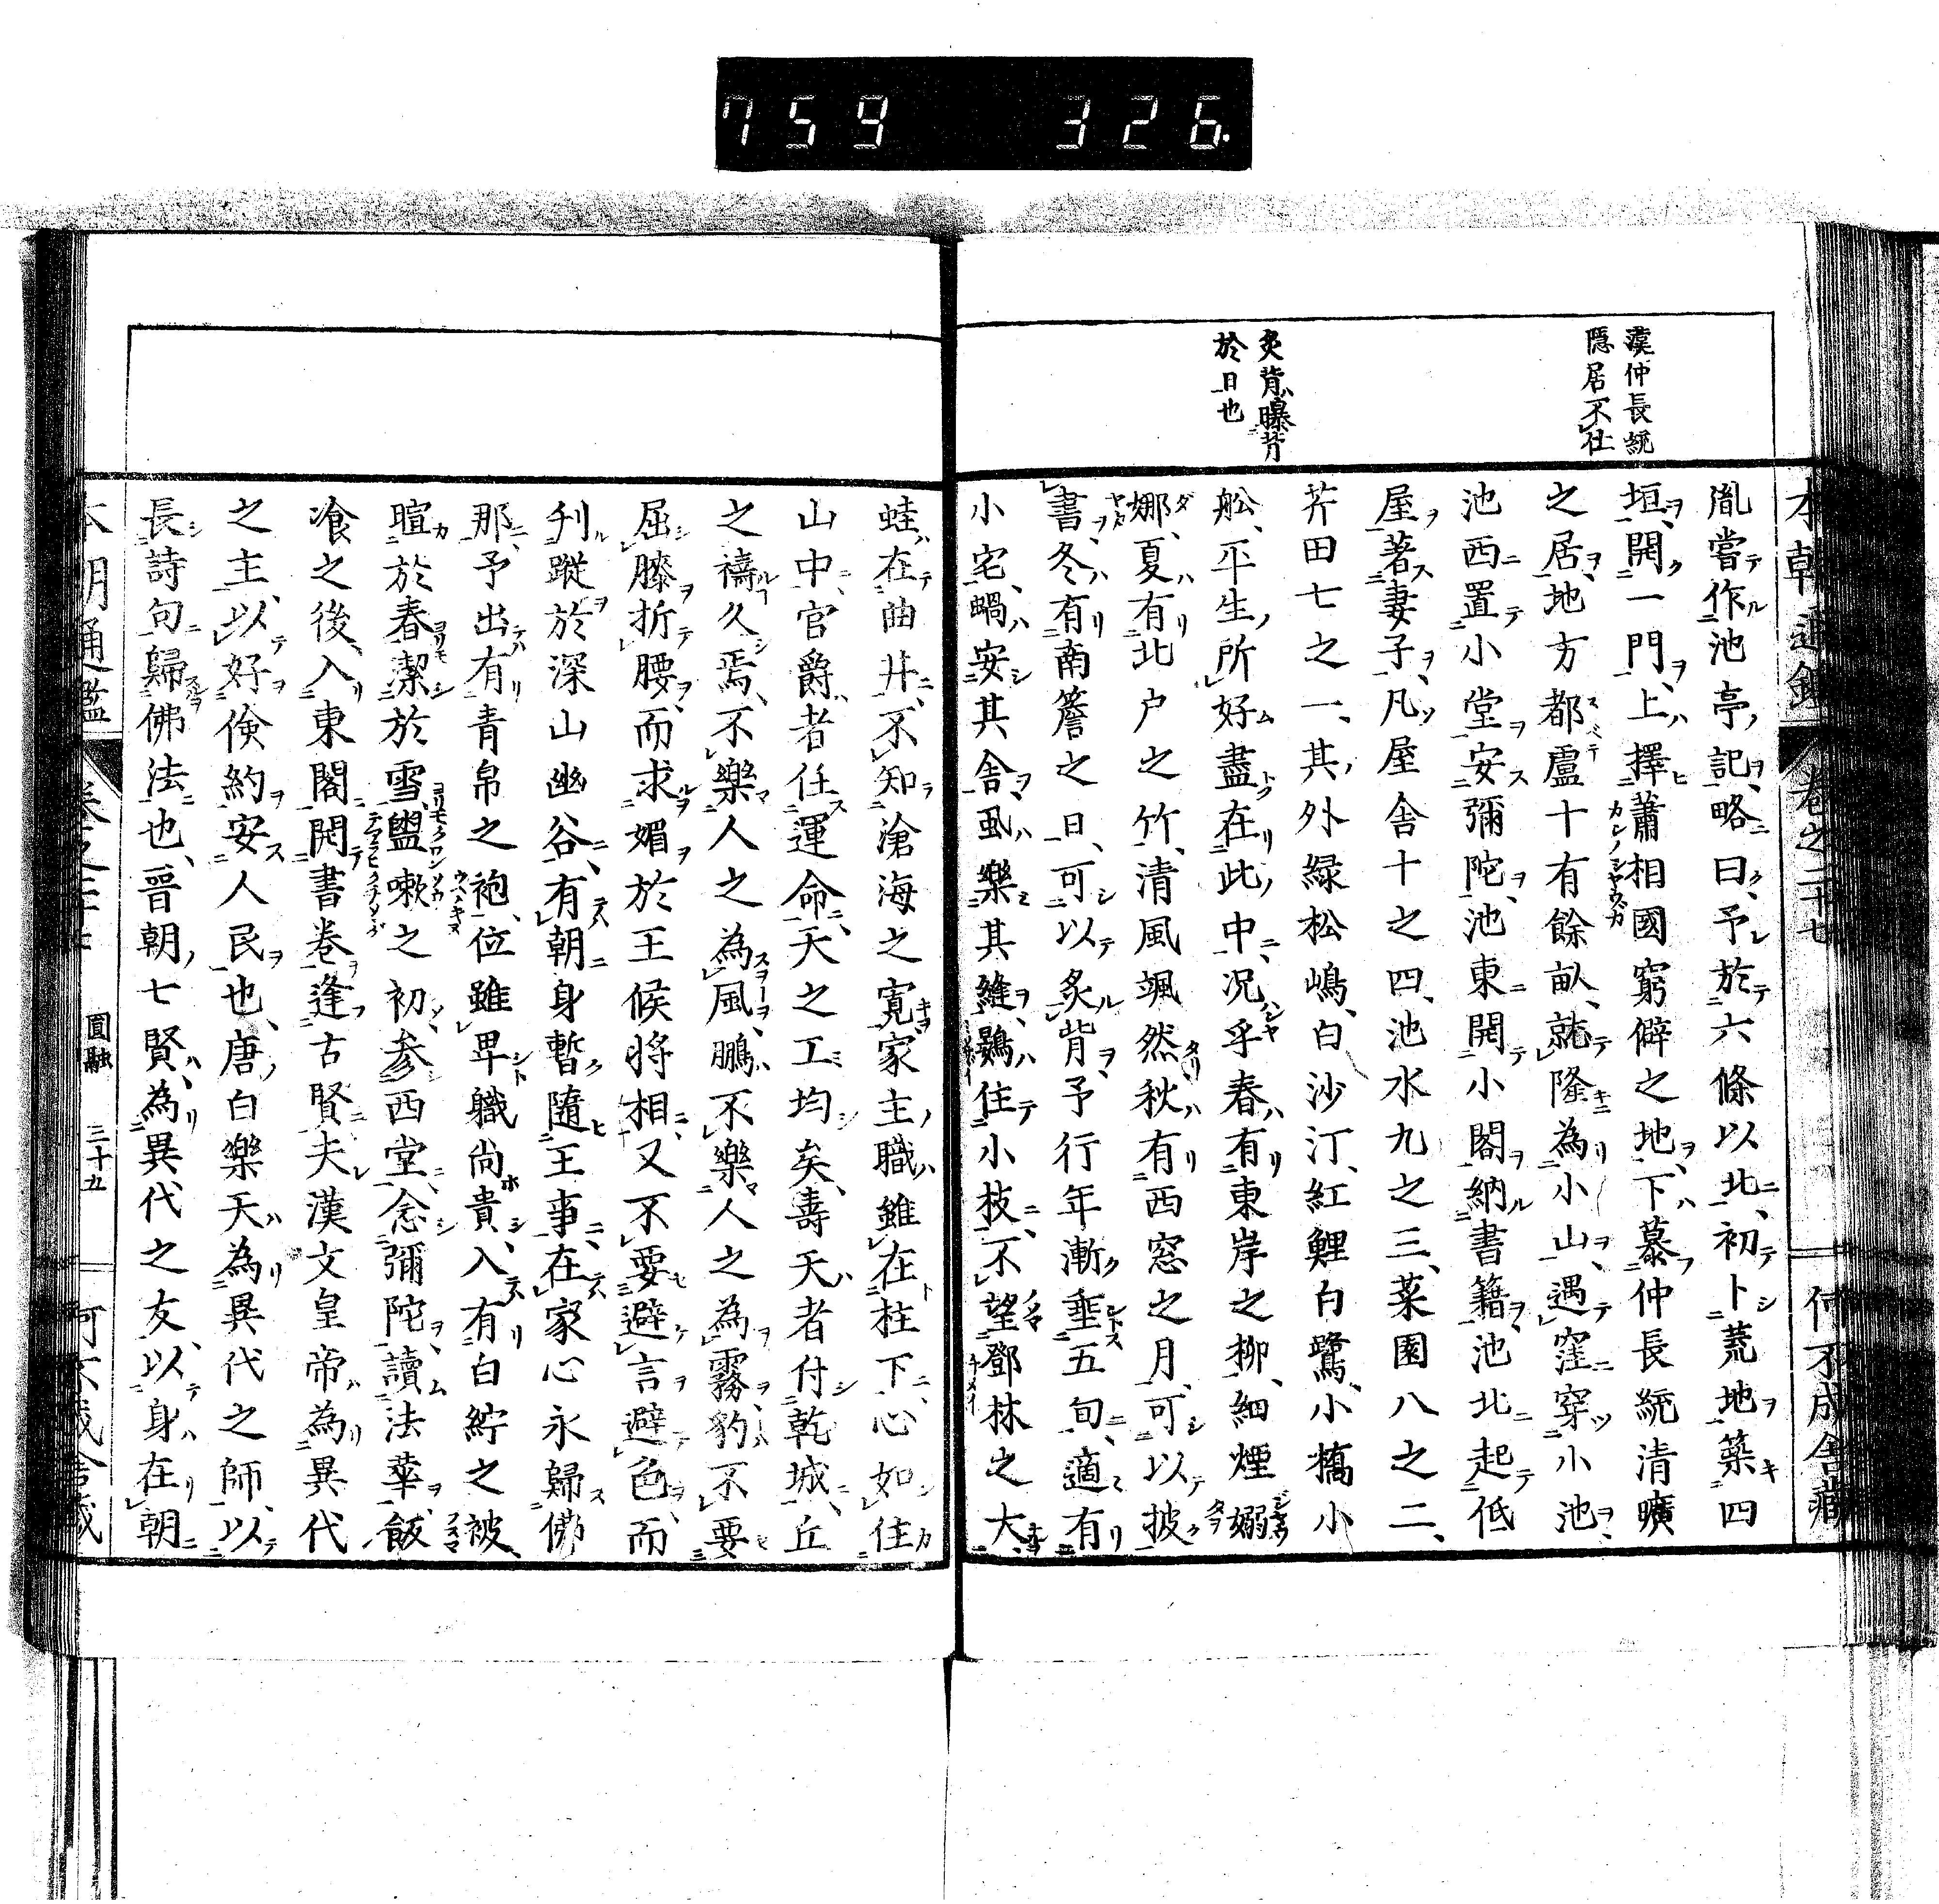 759 326.
本朝通鑑 卷之二十七 何不成舍藏
漢仲長統
隱居不仕
炙背曝背
於日也
胤嘗作池亭記略曰予於六條以北初卜荒地築四
垣開一門上擇蕭相國窮僻之地下慕仲長統清曠
之居地方都盧十有餘畝就隆為小山遇窪穿小池
池西置小堂安彌陀池東開小閣納書籍池北起低
屋著妻子凡屋舍十之四池水九之三菜園八之二
芥田七之一其外緑松嶋白沙汀紅鯉白鷺小橋小
舩平生所好盡在此中況乎春有東岸之柳細煙嫋
娜夏有北户之竹清風颯然秋有西窓之月可以披
書冬有南簷之日可以炙背予行年漸垂五旬適有
小宅蝸安其舎虱樂其縫鷃住小枝不望鄧林之大
蛙在曲井不知滄海之寛家主職雖在柱下心如住
山中官爵者任運命天之工均矣壽夭者付乾城丘
之禱久焉不樂人之為風鵬不樂人之為霧豹不要
屈膝折腰而求媚於王侯将相又不要避言避色而
刋蹤於深山幽谷有朝身暫隨王事在家心永歸佛
那予出有青帛之袍位雖卑職尚貴入有白紵之被
暄於春潔於雪盥嗽之初参西堂念彌陀讀法華飯
飡之後入東閣開書卷逢古賢夫漢文皇帝為異代
之主以好倹約安人民也唐白樂天為異代之師以
長詩句歸佛法也晉朝七賢為異代之友以身在朝
本朝通鑑 卷之二十七 圓融 三十五 何不成舍藏